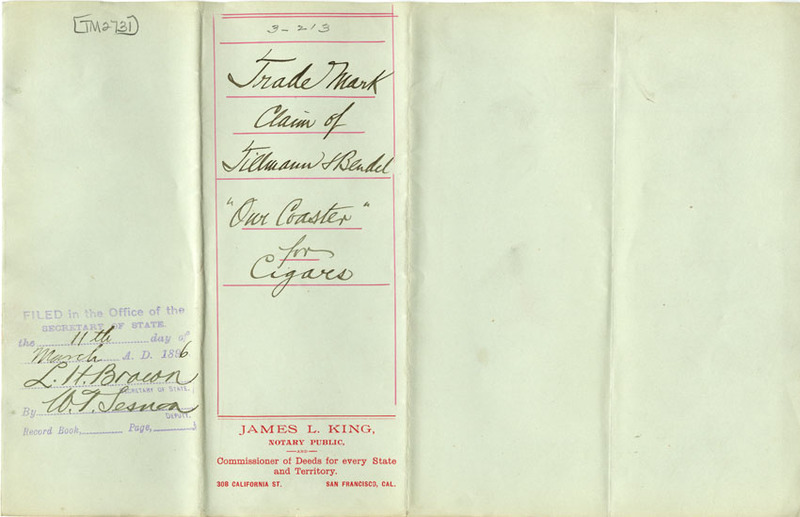 [TM2731]
3-213
Trade Mark
Claim of
Tillmann & Bendel
"Our Coaster"
for
Cigars
FILED in the Office of the
SECRETARY OF STATE.
the 11th day of
March A. D. 1896
L. H. Brown
SECRETARY OF STATE.
By W. T. Sesnon
DEPUTY.
Record Book, Page,
JAMES L. KING,
NOTARY PUBLIC,
—AND—
Commissioner of Deeds for every State
and Territory.
308 CALIFORNIA ST. SAN FRANCISCO, CAL.